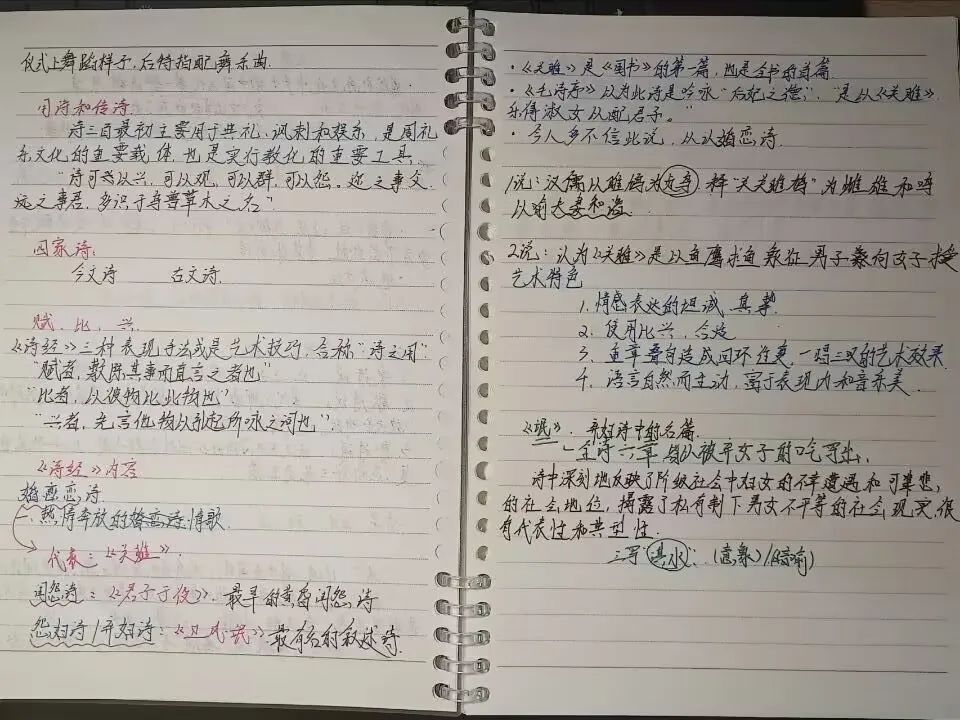 仪式上舞蹈样子,后待指配舞乐曲.
用诗和传诗.
诗三百最初主要用于典礼、讽刺和娱乐,是周礼
乐文化的重要载体,也是实行教化的重要工具,
"诗可以兴,可以观,可以群,可以怨。迩之事父,
远之事君,多识于鸟兽草木之名"
四家诗:
今文诗 古文诗.
赋、比、兴.
《诗经》三种表现手法或是艺术技巧,合称"诗之用".
"赋者,敷陈其事而直言之者也"
"比者,以彼物比此物也"
"兴者,先言他物以引起所咏之词也"
《诗经》内容
婚恋诗
热情奔放的恋诗情歌.
代表:《关雎》.
闺怨诗:《君子于役》.最早的闺怨诗
怨妇诗/弃妇诗:《卫风·氓》.最有名的叙述诗.
·《关雎》是《国书》的第一篇,也是全书的首篇
·《毛诗序》以为此诗是吟咏"后妃之德",“是以《关雎》
乐得淑女以配君子"。
·今人多不信此说,认婚恋诗.
1说:汉儒以雎鸠为鸟,释"关关雎鸠"为雌雄和鸣
以喻夫妻和谐.
2说:认为《关雎》是以鱼鹰求鱼象征男子向女子求爱
艺术特色
1.情感表达的坦诚、真挚.
2.使用比兴,合适
3.重章叠句造成回环往复,一唱三叹的艺术效果.
4.语言自然而生动,富于表现力和音乐美.
《氓》.弃妇诗中的名篇.
全诗六章,以被弃女子的口气写出.
诗中深刻地反映了阶级社会中妇女的不幸遭遇和可悲
的社会地位,揭露了私有制下男女不平等的社会现实,很
有代表性和典型性.
三写淇水:(意象)/(暗喻)